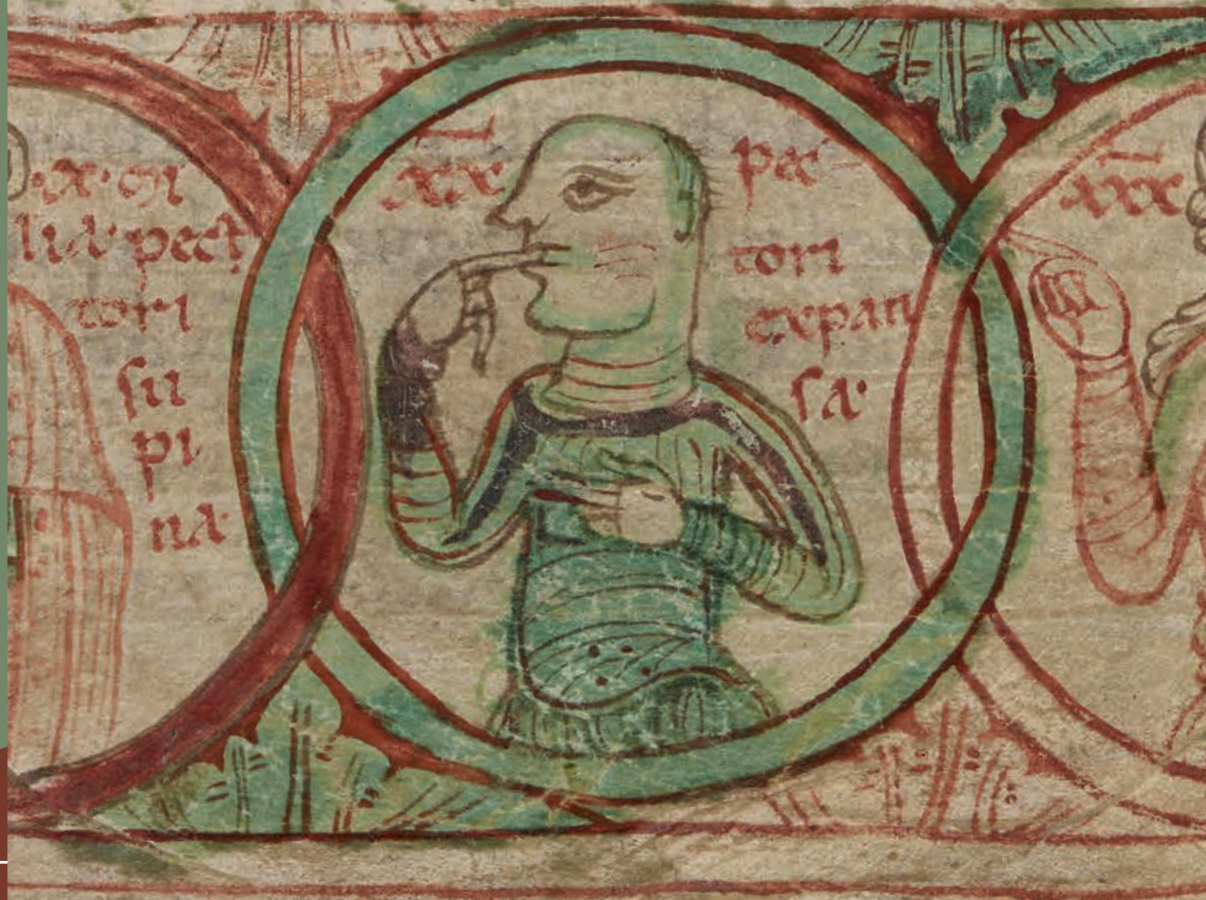 ·x·mi
lia· pect
tori
su
pi
na·
x̄x̄
pec
tori
expan
sa·
x̄x̄x̄